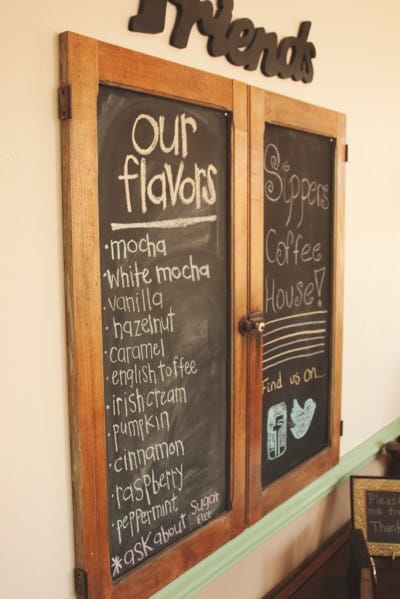 Friends
our
flavors
· mocha
· white mocha
· vanilla
· hazelnut
· caramel
· english toffee
· irish cream
· pumpkin
· cinnamon
· raspberry
· peppermint
* ask about Sugar
Free
Sippers
Coffee
House!
Find us on...
f
Please
me fr
Thank